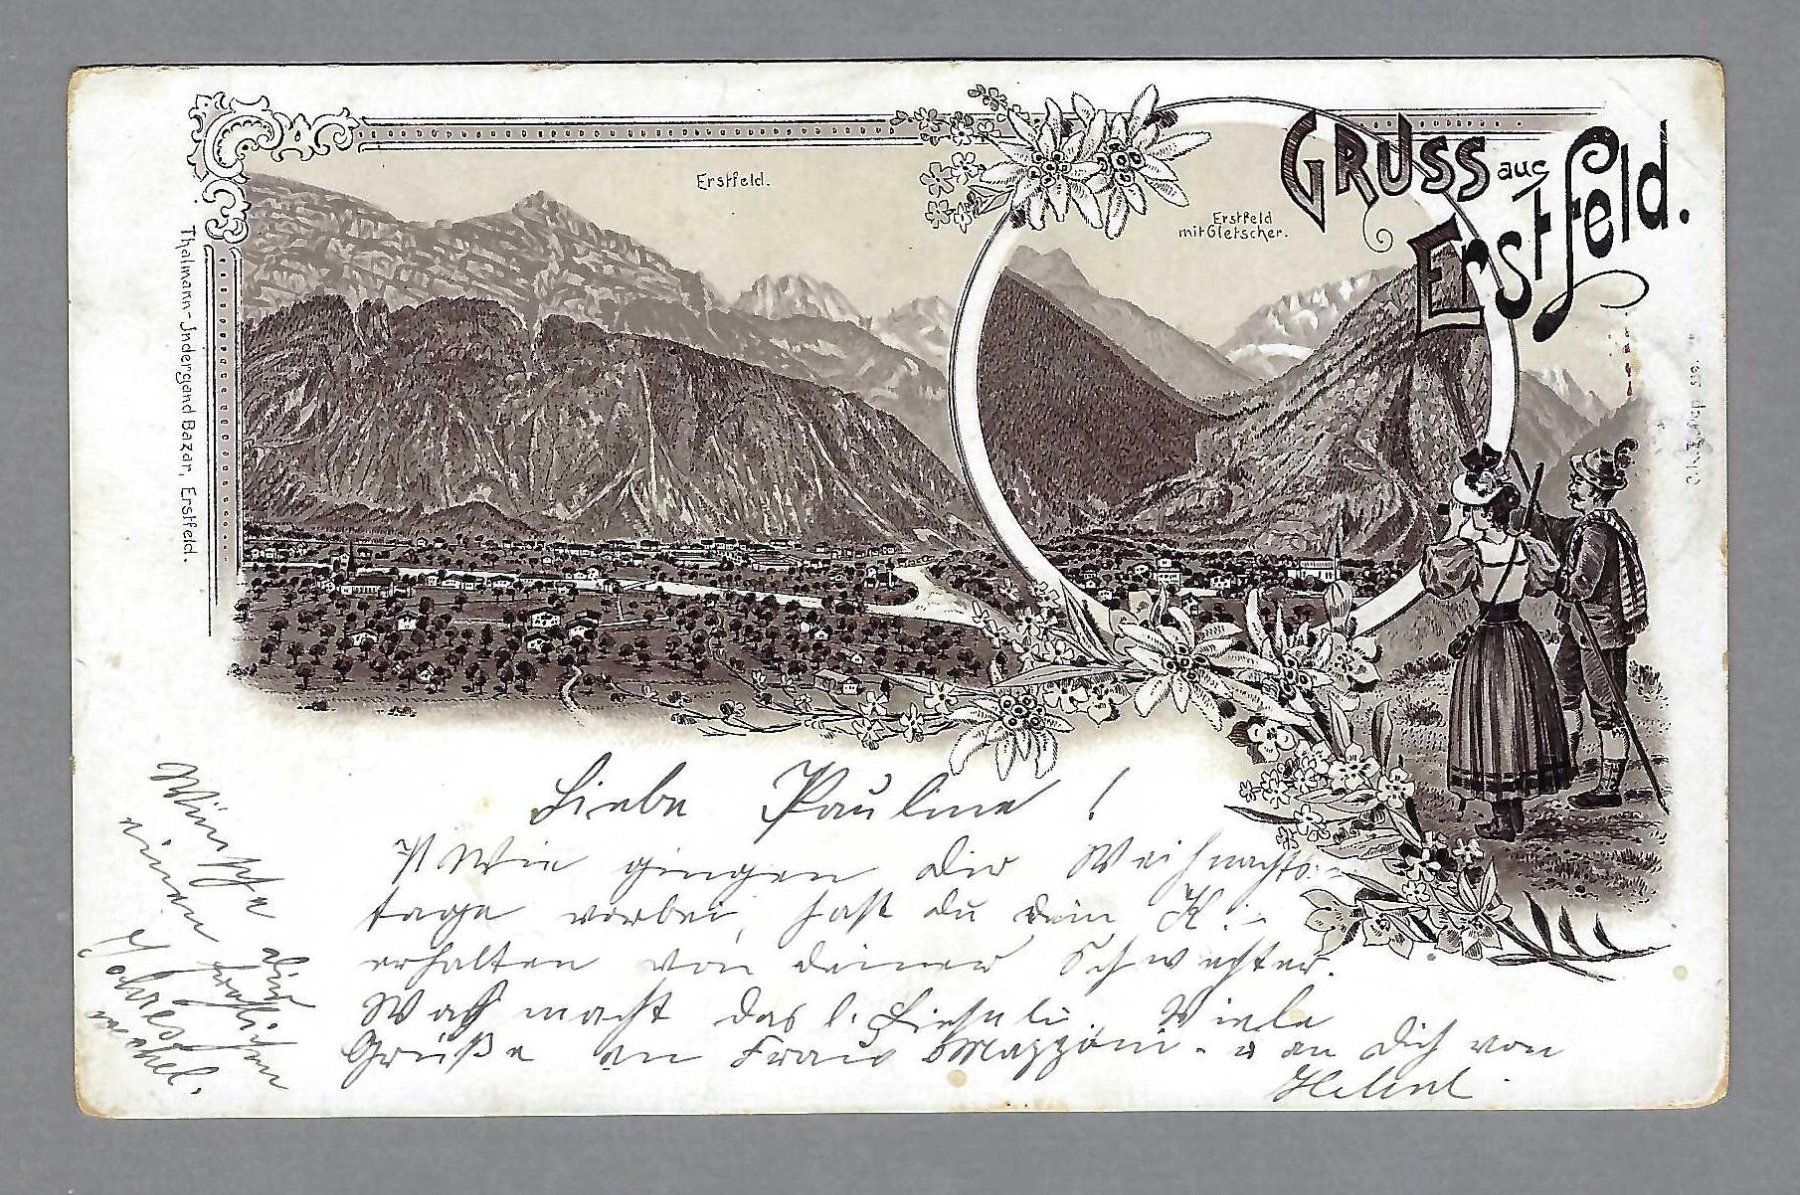 Erstfeld.
Erstfeld
mit Gletscher.
GRUSS aus
Erstfeld.
Thalmann-Indergand Bazar, Erstfeld.
Liebe Pauline!
Wie gingen dir Weihnachts-
tage vorbei, hast du dein K.
erhalten von deiner Schwester.
Was macht das l. Liseli. Viele
Grüße an Frau Mazzoni. u an dich von
Wünsche dir
einen fröhlichen
Jahres
wechsel.